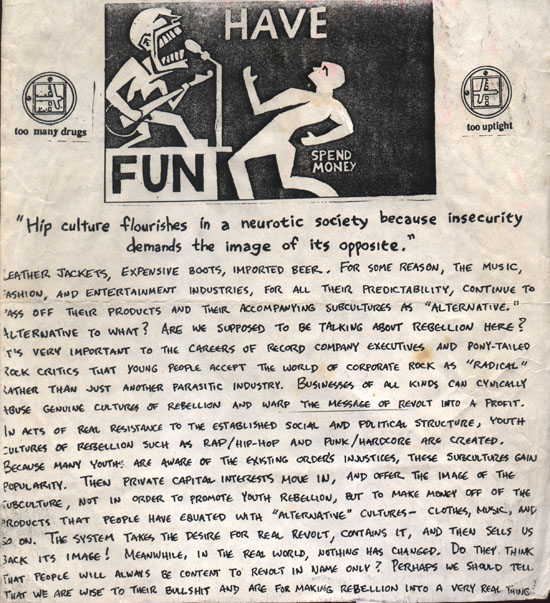 HAVE
FUN
SPEND
MONEY
too many drugs
too uptight
"Hip culture flourishes in a neurotic society because insecurity
demands the image of its opposite."
LEATHER JACKETS, EXPENSIVE BOOTS, IMPORTED BEER. FOR SOME REASON, THE MUSIC,
FASHION, AND ENTERTAINMENT INDUSTRIES, FOR ALL THEIR PREDICTABILITY, CONTINUE TO
PASS OFF THEIR PRODUCTS AND THEIR ACCOMPANYING SUBCULTURES AS "ALTERNATIVE."
ALTERNATIVE TO WHAT? ARE WE SUPPOSED TO BE TALKING ABOUT REBELLION HERE?
IT'S VERY IMPORTANT TO THE CAREERS OF RECORD COMPANY EXECUTIVES AND PONY-TAILED
ROCK CRITICS THAT YOUNG PEOPLE ACCEPT THE WORLD OF CORPORATE ROCK AS "RADICAL"
RATHER THAN JUST ANOTHER PARASITIC INDUSTRY. BUSINESSES OF ALL KINDS CAN CYNICALLY
ABUSE GENUINE CULTURES OF REBELLION AND WARP THE MESSAGE OF REVOLT INTO A PROFIT.
IN ACTS OF REAL RESISTANCE TO THE ESTABLISHED SOCIAL AND POLITICAL STRUCTURE, YOUTH
CULTURES OF REBELLION SUCH AS RAP/HIP-HOP AND PUNK/HARDCORE ARE CREATED.
BECAUSE MANY YOUTHS ARE AWARE OF THE EXISTING ORDER'S INJUSTICES, THESE SUBCULTURES GAIN
POPULARITY. THEN PRIVATE CAPITAL INTERESTS MOVE IN, AND OFFER THE IMAGE OF THE
SUBCULTURE, NOT IN ORDER TO PROMOTE YOUTH REBELLION, BUT TO MAKE MONEY OFF OF THE
PRODUCTS THAT PEOPLE HAVE EQUATED WITH "ALTERNATIVE" CULTURES- CLOTHES, MUSIC, AND
SO ON. THE SYSTEM TAKES THE DESIRE FOR REAL REVOLT, CONTAINS IT, AND THEN SELLS US
BACK ITS IMAGE! MEANWHILE, IN THE REAL WORLD, NOTHING HAS CHANGED. DO THEY THINK
THAT PEOPLE WILL ALWAYS BE CONTENT TO REVOLT IN NAME ONLY? PERHAPS WE SHOULD TELL
THAT WE ARE WISE TO THEIR BULLSHIT AND ARE FOR MAKING REBELLION INTO A VERY REAL THING?